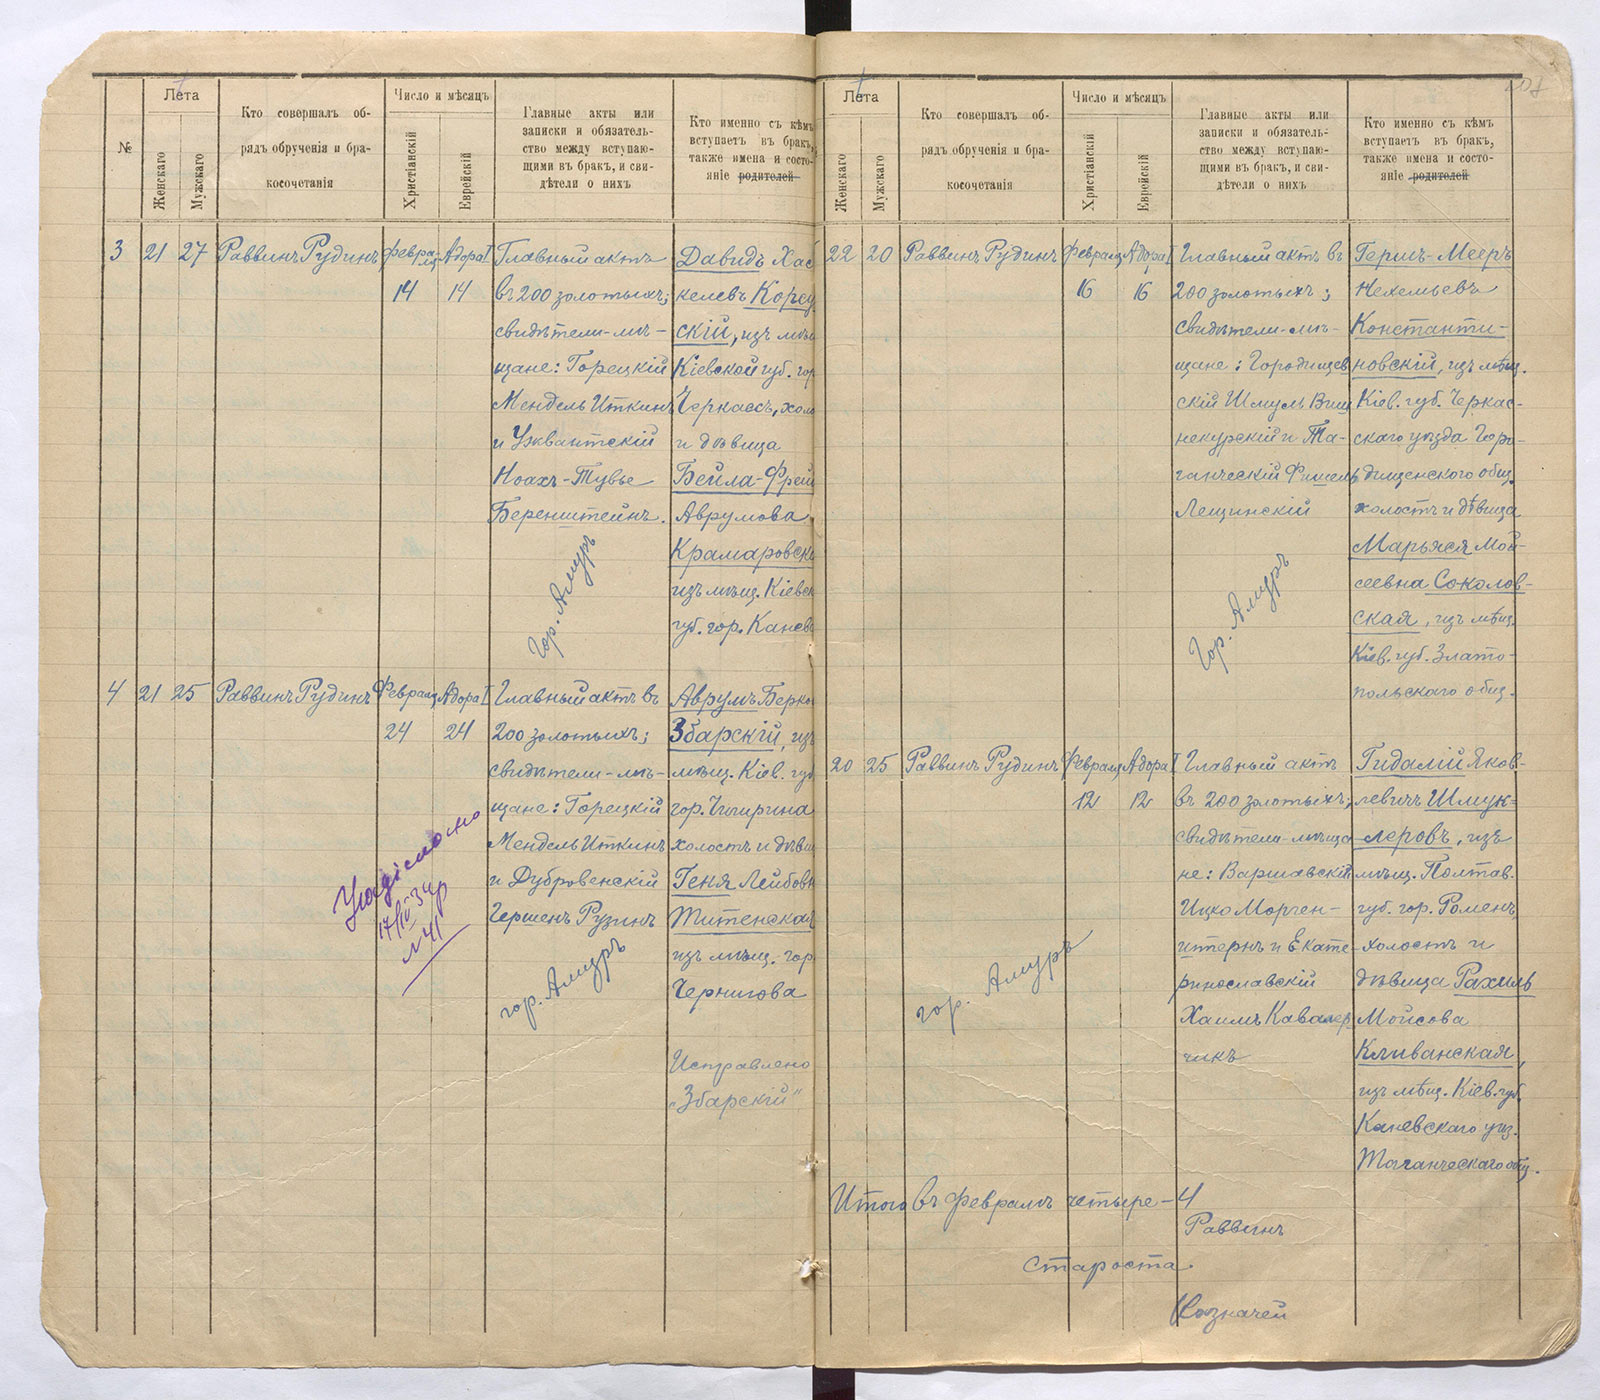 №
Лѣта
Женскаго
Мужскаго
Кто совершалъ об-
рядъ обрученія и бра-
косочетанія
Число и мѣсяцъ
Христіанскій
Еврейскій
Главные акты или
записки и обязатель-
ство между вступаю-
щими въ бракъ, и сви-
дѣтели о нихъ
Кто именно съ кѣмъ
вступаетъ въ бракъ,
также имена и состо-
яніе родителей
3
21
27
Раввинъ Рудинъ
Февраля
14
Адора I
14
Главный актъ
въ 200 золотыхъ;
свидѣтели-мѣ-
щане: Горецкій
Мендель Иткинъ
и Ужвантскій
Ноахъ-Тувье
Беренштейнъ.
гор. Амуръ
Давидъ Хас
келевъ Корец
скій, изъ мѣщ
Кіевской губ. гор
Черкасъ, холо
и дѣвица
Бейла-Фрей
Аврумова
Крамаровска
изъ мѣщ. Кіевск
губ. гор. Канева
4
21
25
Раввинъ Рудинъ
Февраля
24
Адора I
24
Главный актъ въ
200 золотыхъ;
свидѣтели-мѣ-
щане: Горецкій
Мендель Иткинъ
и Дубровенскій
Гершенъ Рузинъ
гор. Амуръ
17/IV-34 р
№ 41
Аврумъ Берко
Збарскій, изъ
мѣщ. Кіев. губ
гор. Чигирина
холостъ и дѣвиц
Геня Лейбовн
Титенская
изъ мѣщ. гор.
Чернигова
Исправлено
„Збарскій“
Лѣта
Женскаго
Мужскаго
Кто совершалъ об-
рядъ обрученія и бра-
косочетанія
Число и мѣсяцъ
Христіанскій
Еврейскій
Главные акты или
записки и обязатель-
ство между вступаю-
щими въ бракъ, и сви-
дѣтели о нихъ
Кто именно съ кѣмъ
вступаетъ въ бракъ,
также имена и состо-
яніе родителей
22
20
Раввинъ Рудинъ
Февраля
16
Адора I
16
Главный актъ въ
200 золотыхъ;
свидѣтели-мѣ-
щане: Городищен
скій Шмуль Виш
некурскій и Та-
ганческій Фишель
Лещинскій
Гор. Амуръ
Гершъ-Мееръ
Нехемьевъ
Константи-
новскій, изъ мѣщ.
Кіев. губ. Черкас-
скаго уѣзда Горо-
дищенского общ.
холостъ и дѣвица
Марьяся Мой-
сеевна Соколов-
ская, изъ мѣщ.
Кіев. губ. Злато-
польскаго общ.
20
25
Раввинъ Рудинъ
Февраля
12
Адора I
12
Главный актъ
въ 200 золотыхъ;
свидѣтели мѣща
не: Варшавскій
Ицко Морген-
штернъ и Екате
ринославскій
Хаимъ Кавалер
чикъ
гор. Амуръ
Гидалій Яков-
левичъ Шмук-
леровъ, изъ
мѣщ. Полтав.
губ. гор. Роменъ
холостъ и
дѣвица Рахиль
Мойсова
Кливанская,
изъ мѣщ. Кіев. губ.
Каневскаго уѣз.
Таганческаго общ.
Итого въ февралѣ четыре-4
Раввинъ
Староста
Казначей